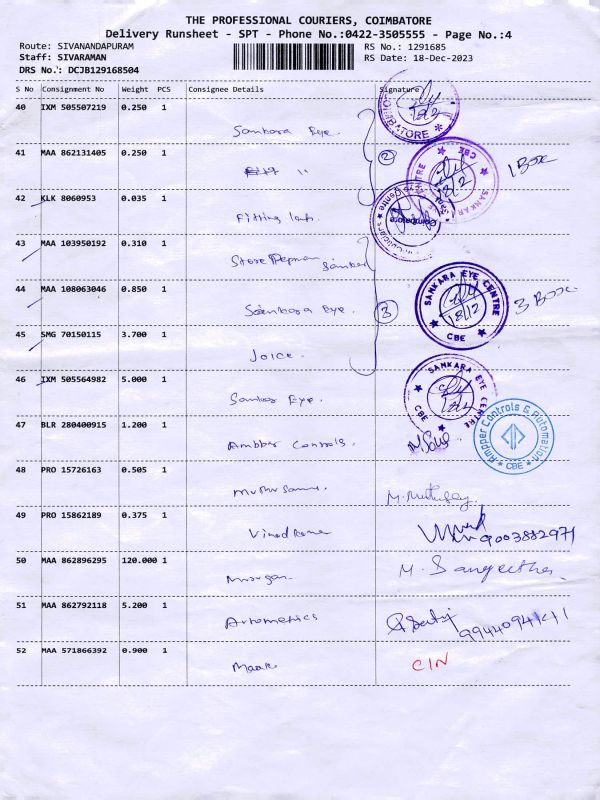 THE PROFESSIONAL COURIERS, COIMBATORE
Delivery Runsheet - SPT - Phone No.:0422-3505555 - Page No.:4
Route: SIVANANDAPURAM RS No.: 1291685
Staff: SIVARAMAN RS Date: 18-Dec-2023
DRS No.: DCJB129168504
S No Consignment No Weight PCS Consignee Details Signature
40 IXM 505507219 0.250 1
Sankara Eye.
41 MAA 862131405 0.250 1
②
1 Box
42 KLK 8060953 0.035 1
Fitting
43 MAA 103950192 0.310 1
Store
44 MAA 108063046 0.850 1
SANKARA EYE CENTRE CBE 18/12
3 Box
Sankara Eye. ③
45 SMG 70150115 3.700 1
Joice.
46 IXM 505564982 5.000 1
SANKARA EYE CENTRE CBE
Eye.
47 BLR 280400915 1.200 1
Ampper Controls & Automation CBE
Controls.
48 PRO 15726163 0.505 1
M.
49 PRO 15862189 0.375 1
9003882971
50 MAA 862896295 120.000 1
Murgan. M. Sangeetha
51 MAA 862792118 5.200 1
52 MAA 571866392 0.900 1
CIN